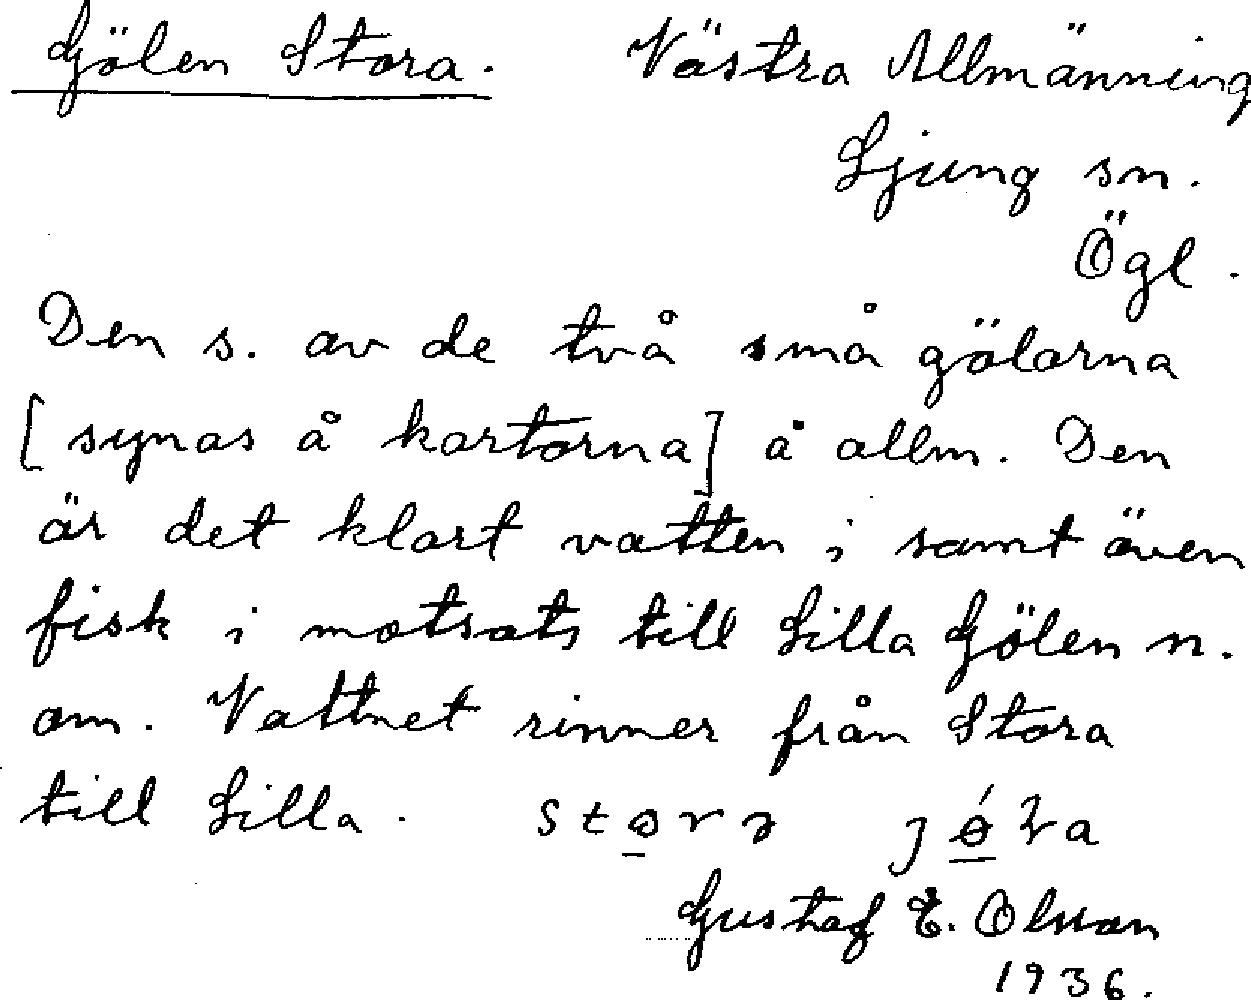 Gölen Stora. Västra Allmänning
Ljung sn.
Ögl.
Den s. av de två små gölarna
[synas å kartorna] å allm. Den
är det klart vatten i samt även
fisk i motsats till Lilla Gölen n.
om. Vattnet rinner från Stora
till Lilla.
Gustaf E. Olsson
1936.